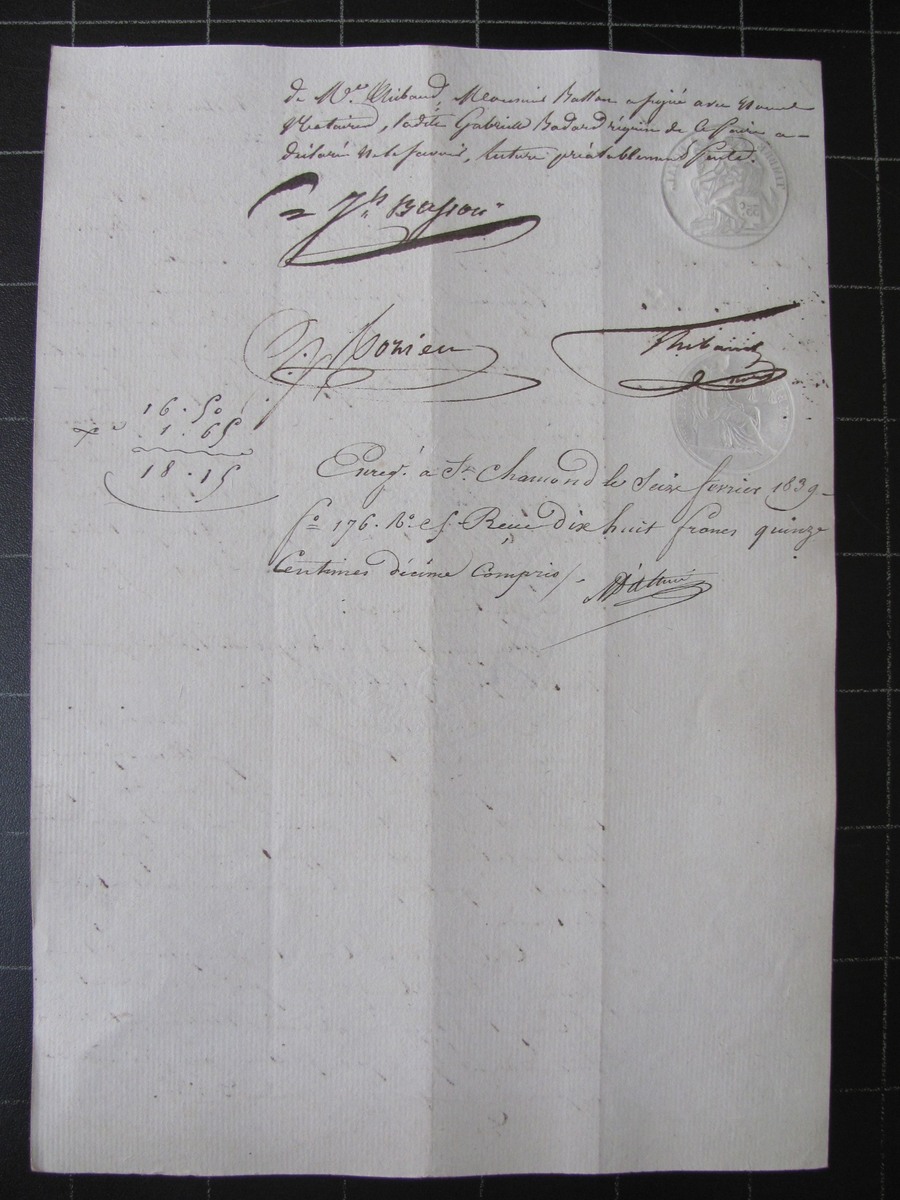 de M.e Thibaud, Monsieur Basson a signé avec nous
Notaires, ladite Gabrielle Badard réquise de le faire a
déclaré ne le savoir, lecture préalablement faite.
Basson
Monier
Thibaud
16.50
1.65
18.15
Enreg.é à St. Chamond le Seize fevrier 1839
fo 176. Ro. c 5. Recu dix huit francs quinze
Centimes décime compris